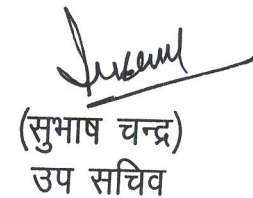 (सुभाष चन्द्र)
उप सचिव